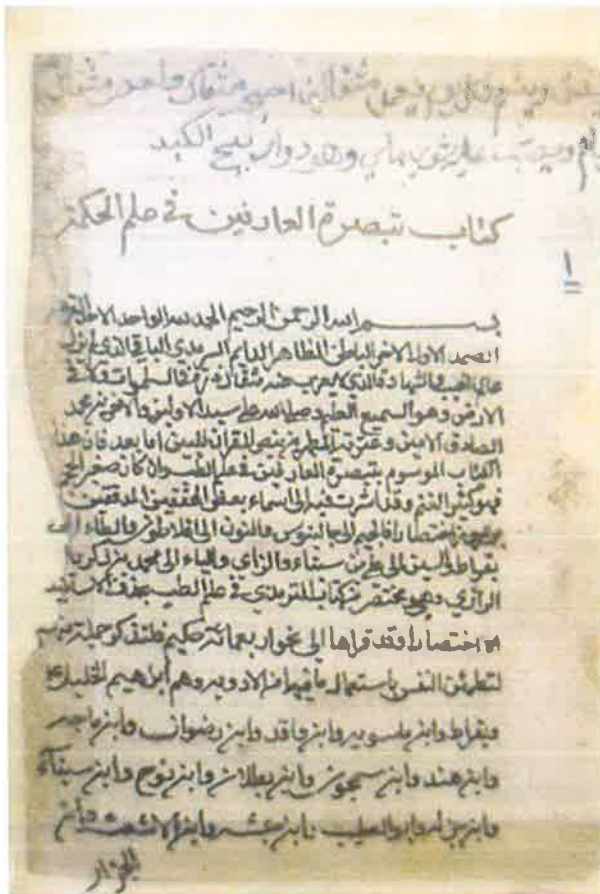 مثقالين مثقال واحد
كتاب تبصرة العارفين في علم الحكمة
١
بسم الله الرحمن الرحيم الحمد لله الواحد الاحد
الصمد الاول الاخر الباطن الظاهر الدايم السرمدي الباقي الذي لم يزل
عالم الغيب والشهادة الذي لا يعزب عنه مثقال ذرة في السموات ولا في
الارض وهو السميع العليم وصلى الله على سيد الاولين والاخرين محمد
الصادق الامين وعترته المطهرين بنص القران المبين اما بعد فان هذا
الكتاب الموسوم بتبصرة العارفين في علم الطب وان كان صغير الحجم
فهو كثير وقد اشرت فيه الى اسماء بعض المحققين المدققين
اختصارا فالجيم الى جالينوس والنون الى افلاطون والطاء الى
بقراط والسين الى علي بن سيناء والزاي والياء الى محمد بن زكريا
الرازي وهو مختصر من كتاب الترمذي في علم الطب بحذف الاسانيد
اختصارا فقد قراها الى نحو اربعمائة حكيم فلنذكر جملة منهم
لتطمئن النفس باستعمال ما فيها من الادوية وهم ابراهيم الخليل
وبقراط وابن ماسويه وابن واقد وابن رضوان وابن ماجه
وابن هند وابن سمجون وابن بطلان وابن نوح وابن سيناء
وابن وابو الطيب وابن وابن الاشعث وابن
الجزار